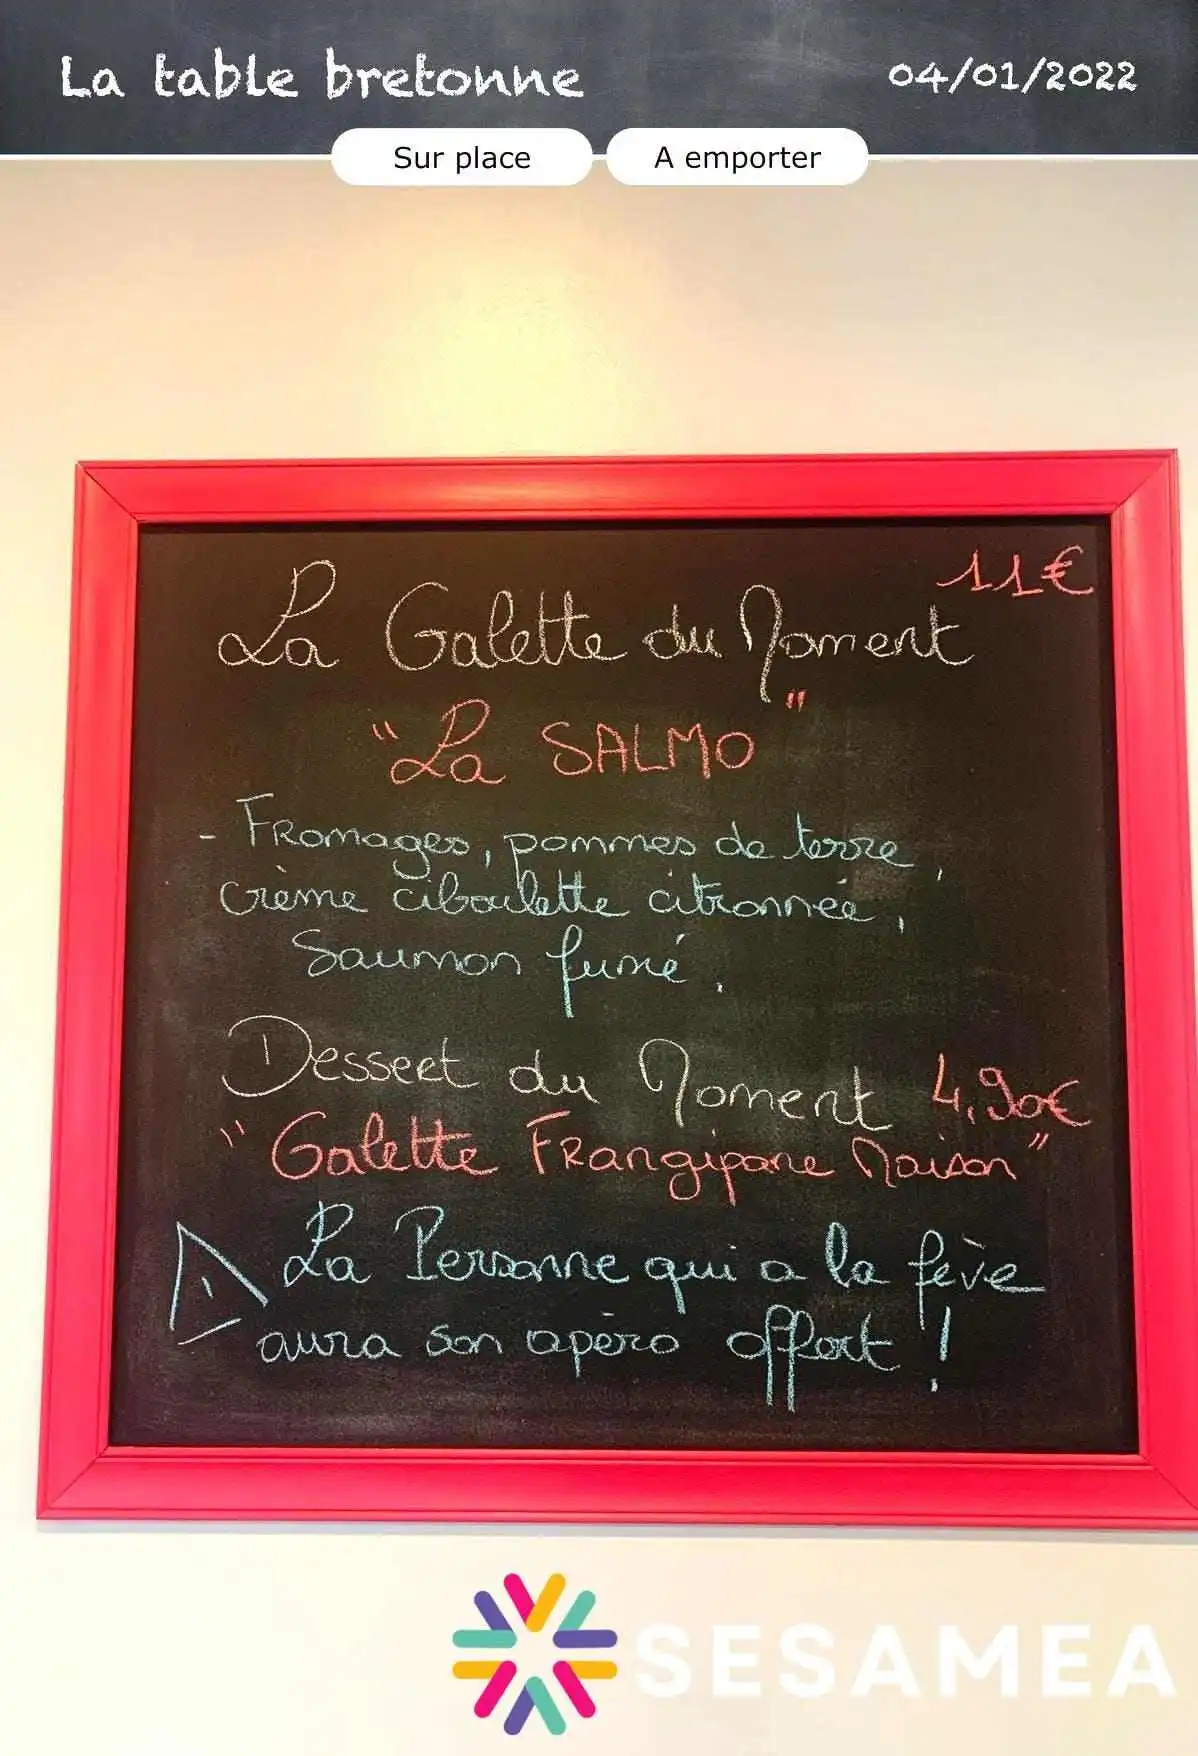 La table bretonne
04/01/2022
Sur place
A emporter
11€
La Galette du Moment
"La SALMO"
- Fromages, pommes de terre,
crème ciboulette citronnée,
Saumon fumé.
Dessert du Moment 4,90€
"Galette Frangipane Maison"
! La Personne qui a la fève
aura son apèro offert !
SESAMEA